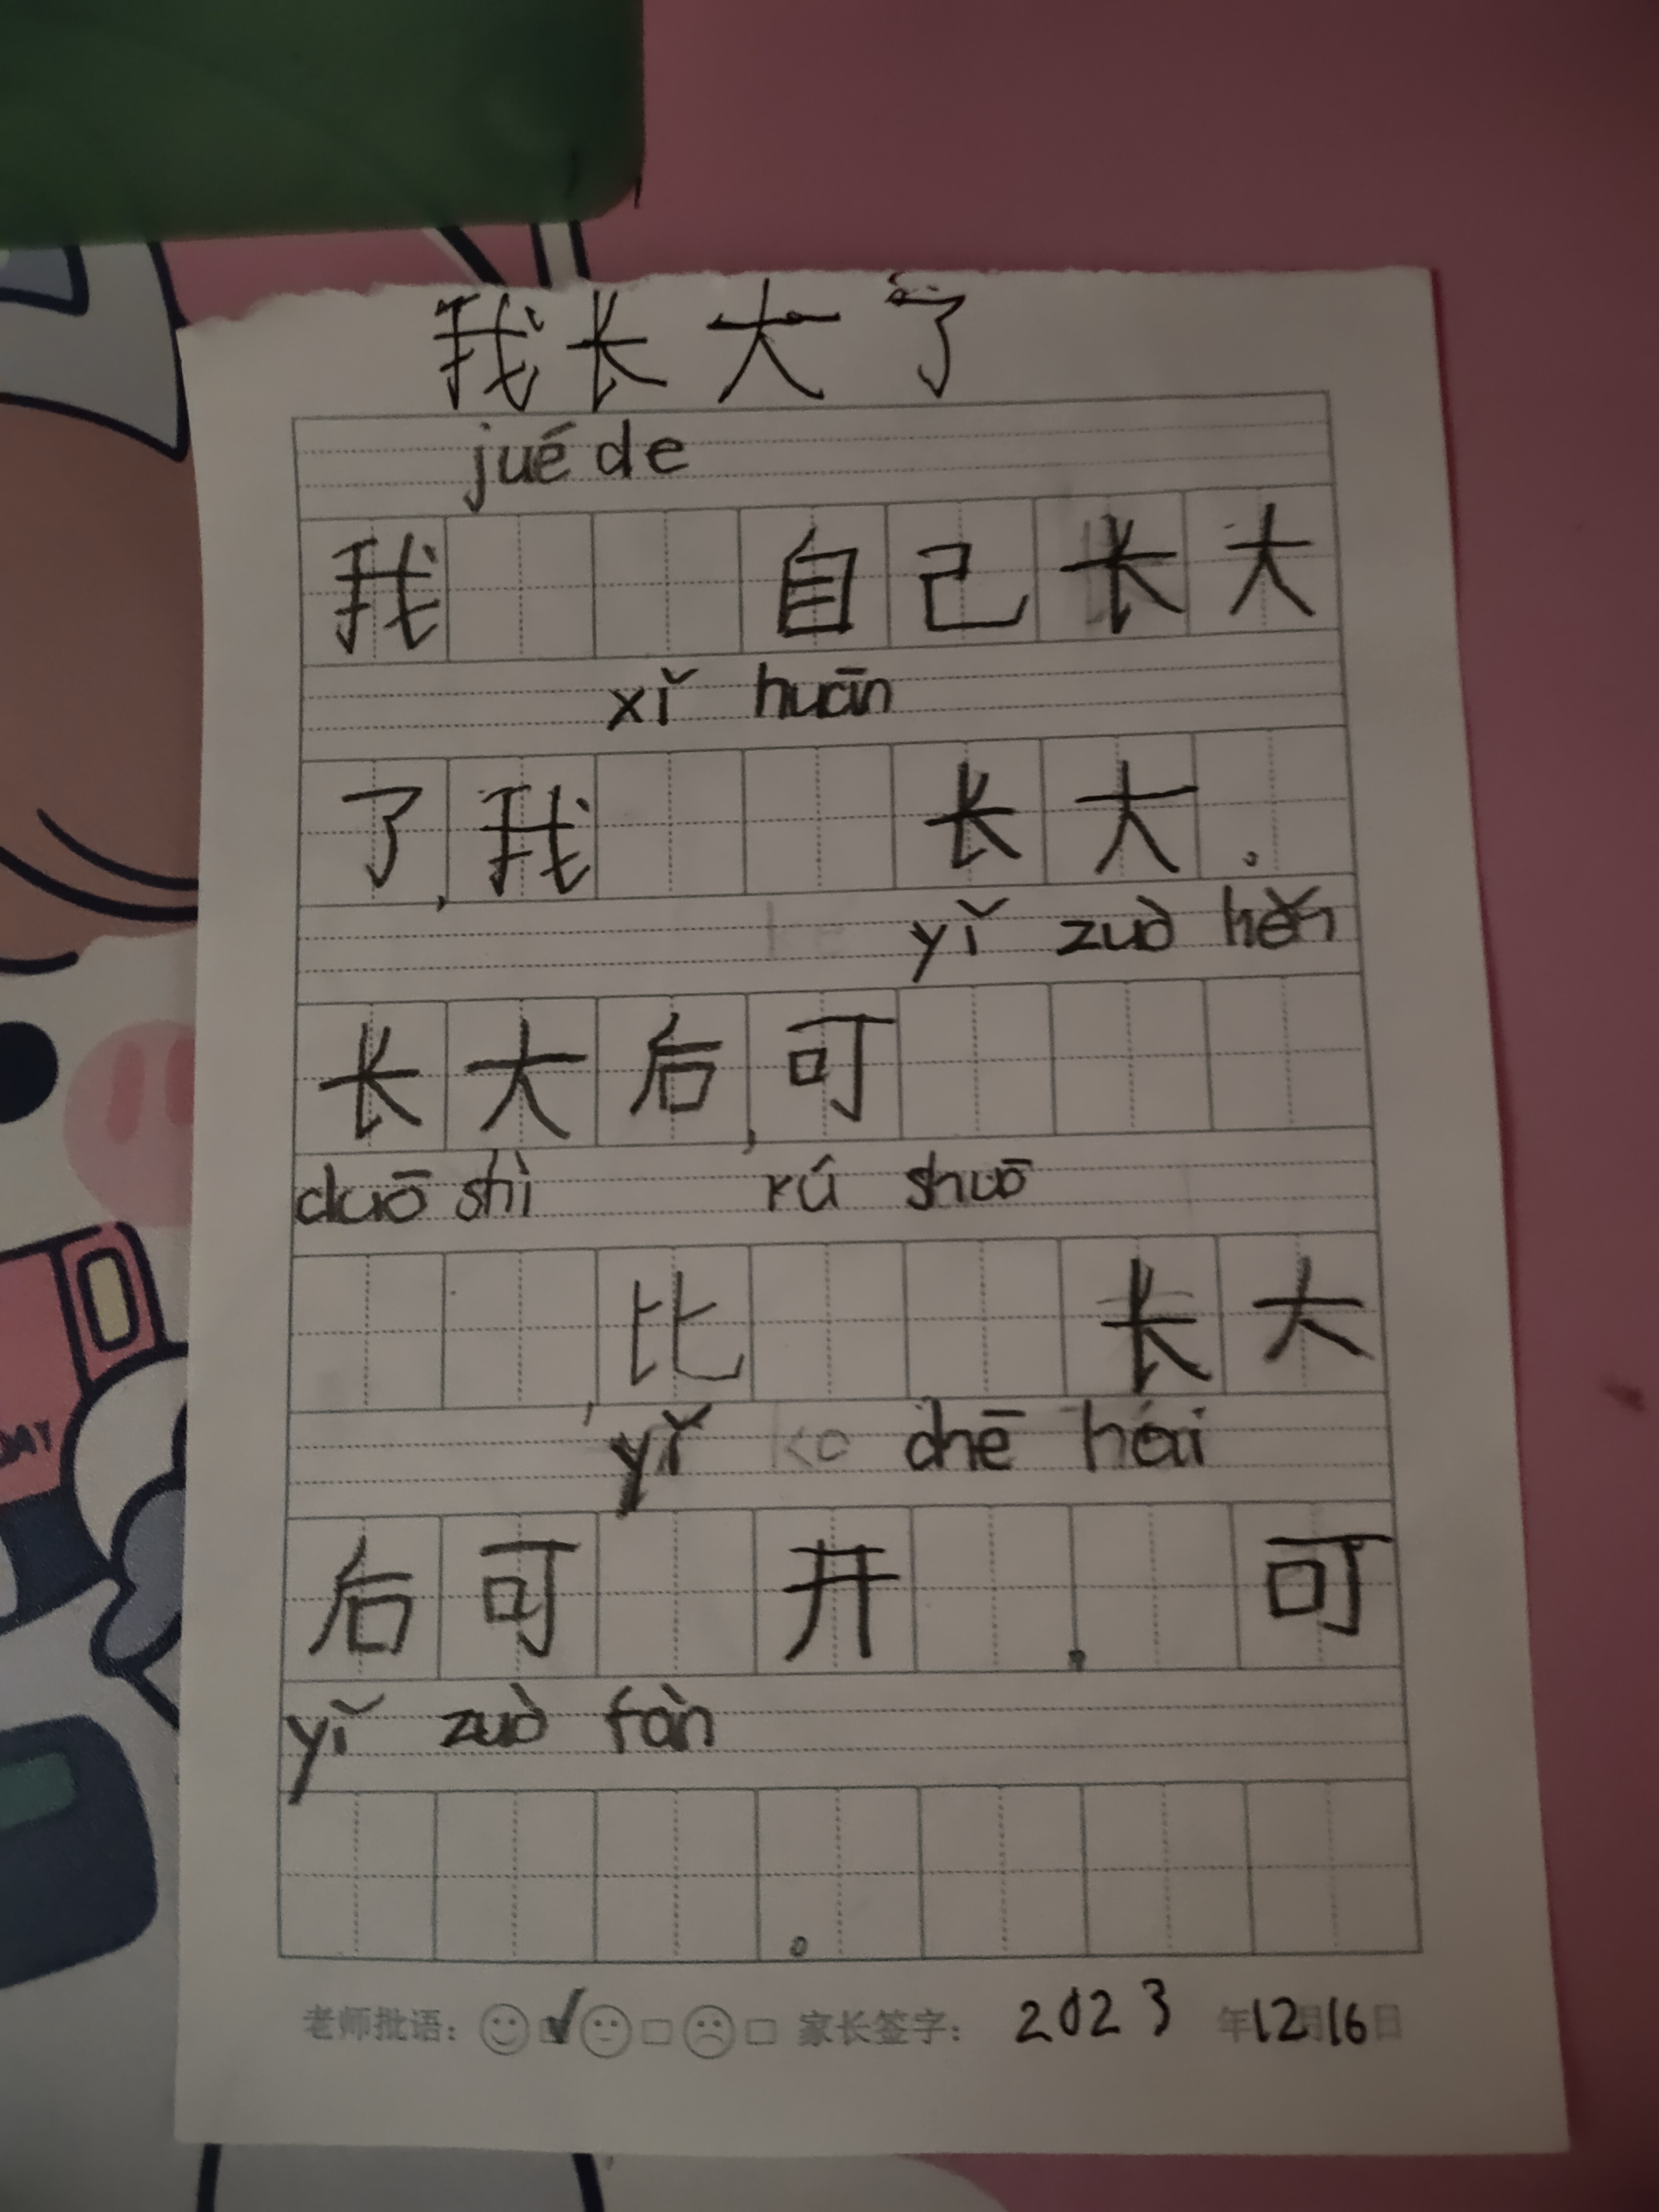 我长大了
jué de
我 自己长大
xǐ huān
了,我 长大。
yǐ zuò hěn
长大后,可
duō shì rú shuō
,比 长大
yǐ ko chē hái
后可 开 . 可
yǐ zuò fàn
。
老师批语: 家长签字: 2023年12月16日
DAY